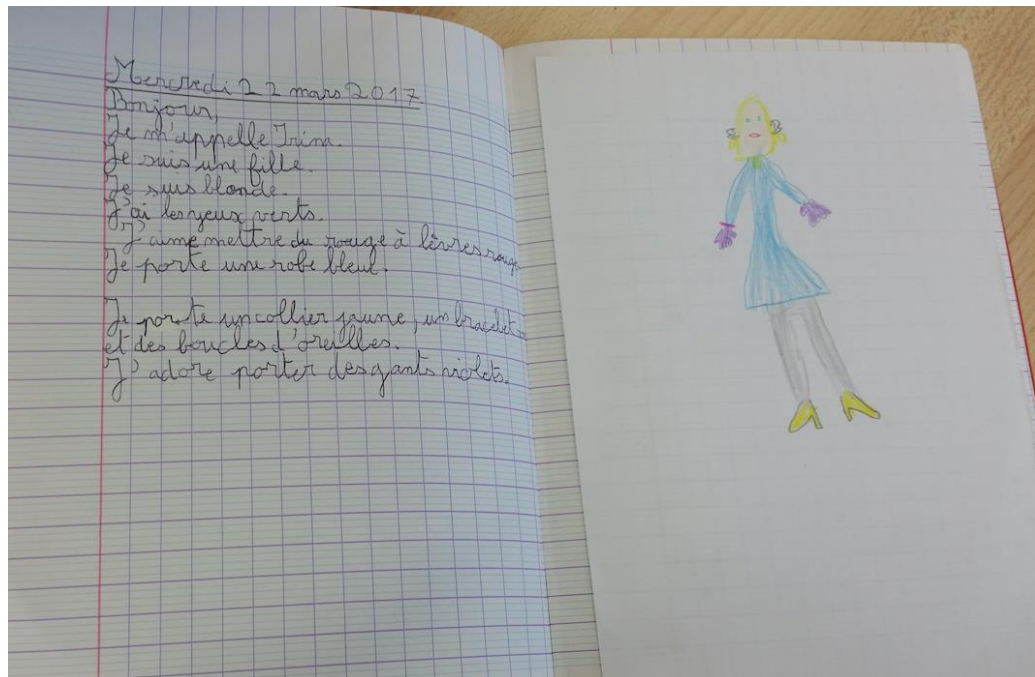 Mercredi 22 mars 2017
Bonjour,
Je m'appelle Irina.
Je suis une fille.
Je suis blonde.
J'ai les yeux verts.
J'aime mettre du rouge à lèvres rouge
Je porte une robe bleue.
Je porte un collier jaune, un bracelet
et des boucles d'oreilles.
J'adore porter des gants violets.